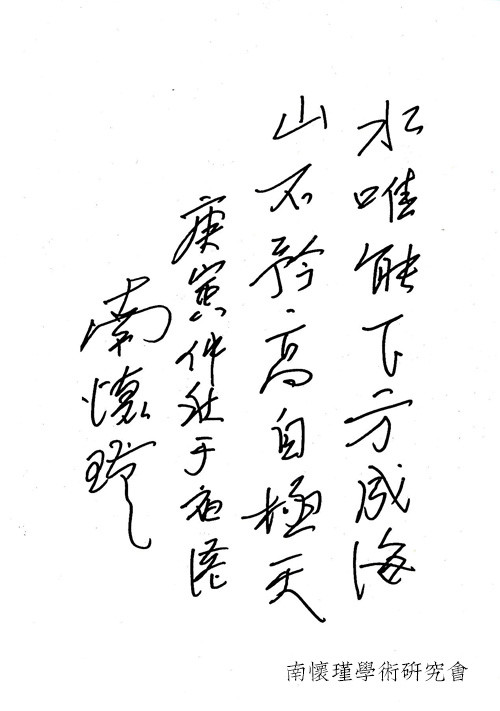 水唯能下方成海
山不矜高自極天
庚寅仲秋于庙港
南懷瑾
南懷瑾學術研究會